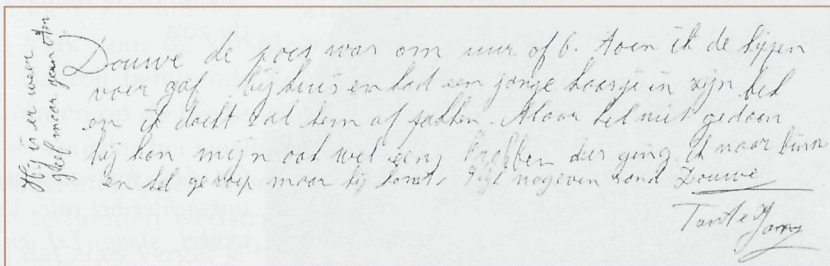 Douwe de poes was om uur of 6. toen ik de kippen
voer gaf bij huis en had een jonge haasje in zijn bek
en ik dacht zal hem af pakken. Maar het niet gedaan
hij kan mijn ook wel eens krabben dus ging ik naar binn
en hel geroep maar hij komt. nog even rond Douwe
Tante
Hij is er weer